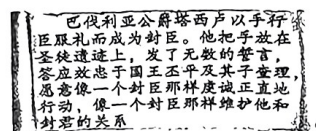 巴伐利亚公爵塔西卢以手行
臣服礼而成为封臣。他把手放在
圣徒遗迹上，发了无数的誓言，
答应效忠于国王丕平及其子查理，
愿意像一个封臣那样虔诚正直地
行动，像一个封臣那样维护他和
封君的关系